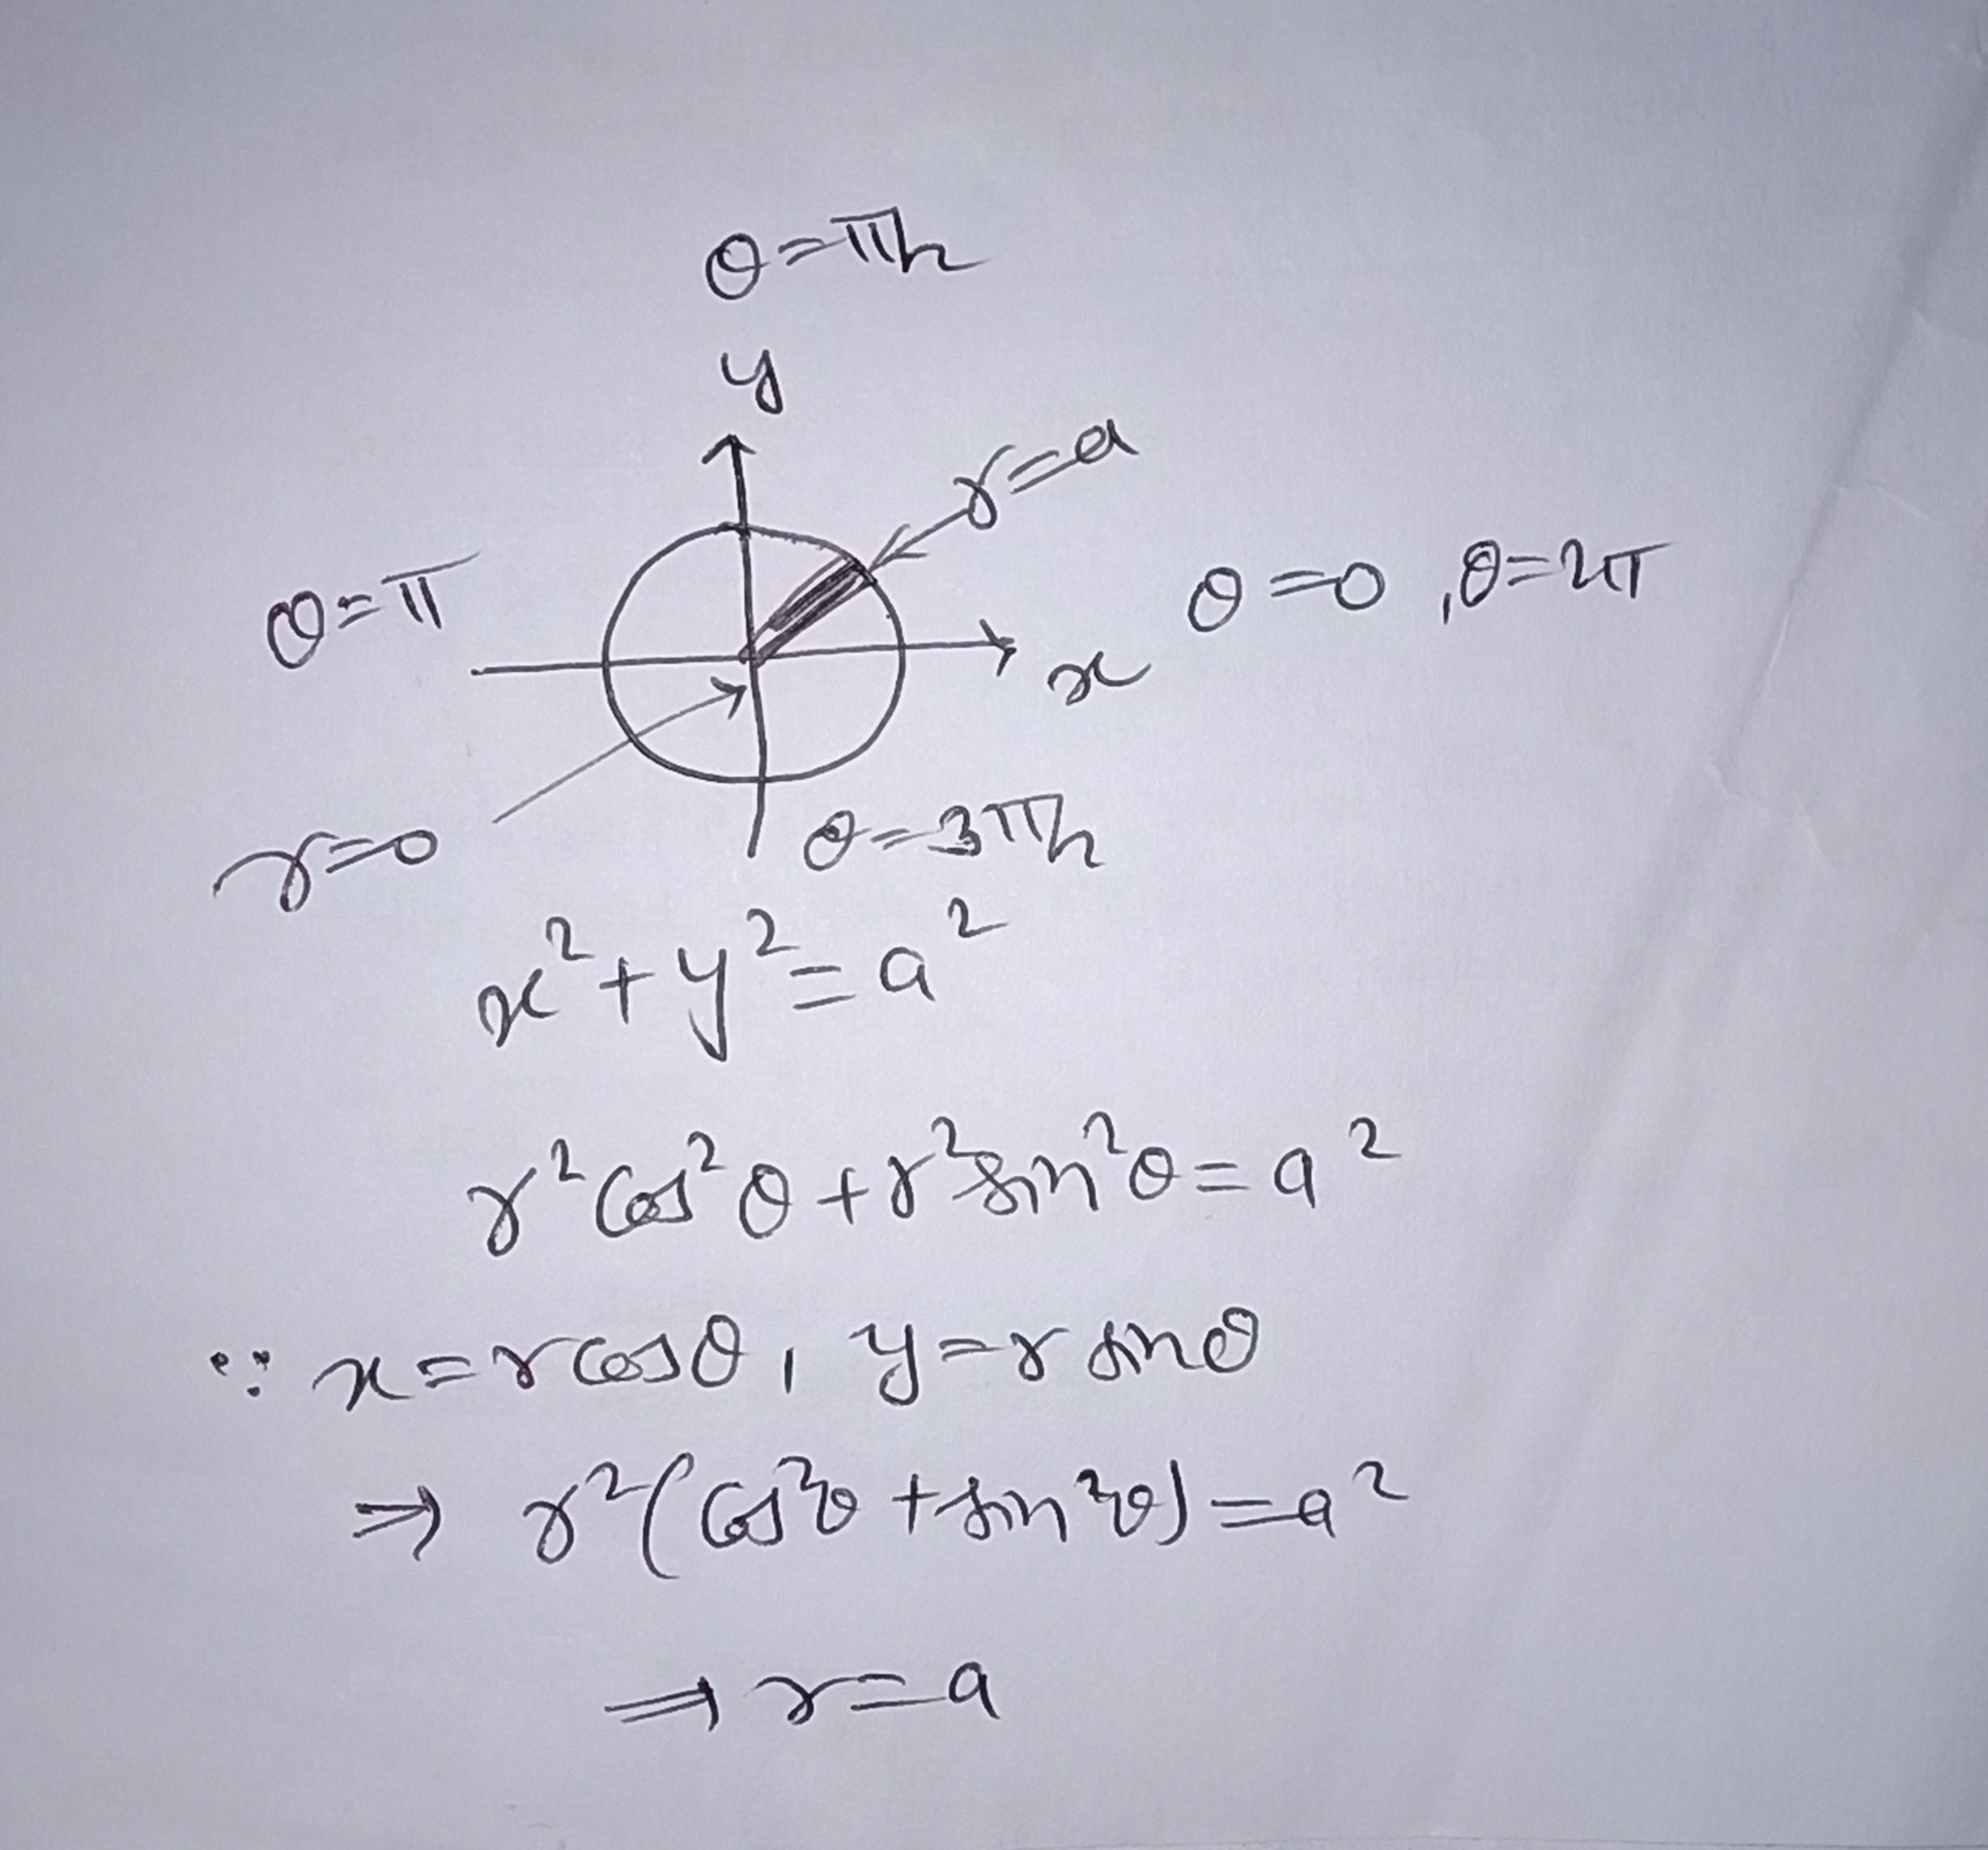 θ=π/2
y
r=a
θ=π
θ=0, θ=2π
x
r=0
θ=3π/2
x²+y²=a²
r²cos²θ+r²sin²θ=a²
∵ x=rcosθ, y=r sinθ
⇒ r²(cos²θ+sin²θ)=a²
⇒ r=a